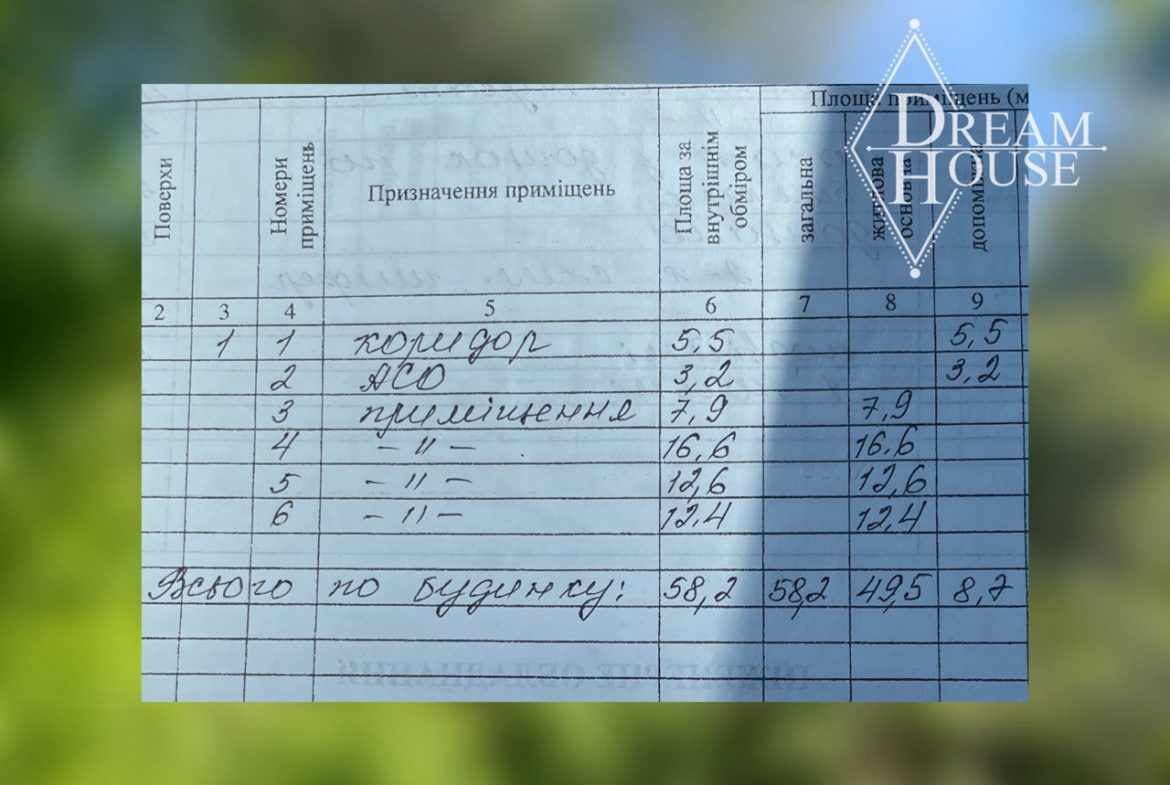 DREAM
HOUSE
Площа приміщень (м
Поверхи
Номери приміщень
Призначення приміщень
Площа за внутрішнім обміром
загальна
житлова основна
допоміжна
2 3 4 5 6 7 8 9
1 1 коридор 5,5 5,5
2 АСО 3,2 3,2
3 приміщення 7,9 7,9
4 – 11 – 16,6 16.6
5 – 11 – 12,6 12,6
6 – 11 – 12.4 12,4
Всього по будинку: 58,2 58,2 49,5 8,7
ІНЖЕНЕРНЕ ОБЛАДНАННЯ